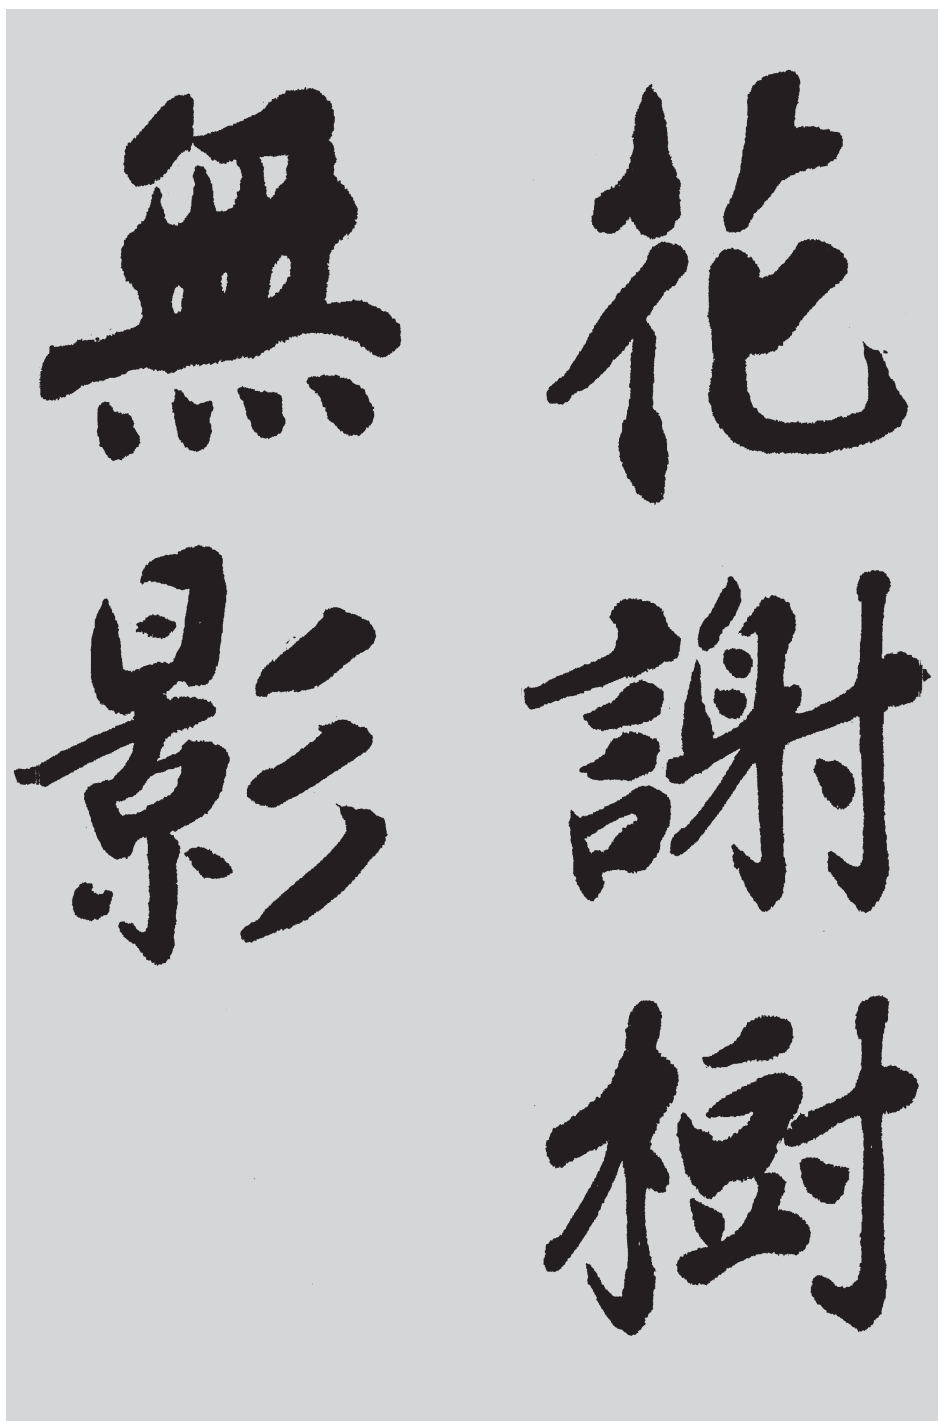 花謝樹
無影